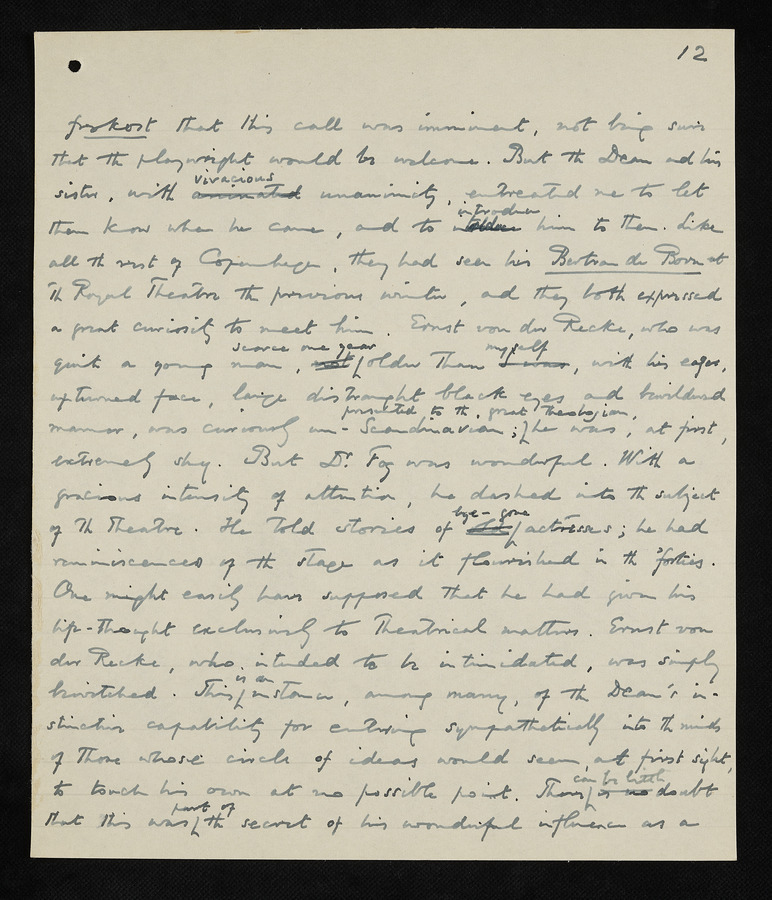 12
frokost that this call was imminent, not being sure
that the playwright would be welcome. But the Dean and his
vivacious
sister, with animated unanimity, entreated me to let
introduce
them know when he came, and to him to them. Like
all the rest of Copenhagen, they had seen his Bertran de Born at
the Royal Theatre the previous winter, and they both expressed
a great curiosity to meet him. Ernst von der Recke, who was
scarce one year myself
quite a young man, not older than I was, with his eager,
upturned face, large distraught black eyes and bewildered
presented to the great theologian,
manner, was curiously un-Scandinavian; he was, at first,
extremely shy. But Dr. Fog was wonderful. With a
gracious intensity of attention, he dashed into the subject
bye-gone
of the Theatre. He told stories of old actresses; he had
reminiscences of the stage as it flourished in the 'forties.
One might easily have supposed that he had given his
life-thought exclusively to Theatrical matters. Ernst von
der Recke, who intended to be intimidated, was simply
is an
bewitched. This instance, among many, of the Dean's in-
stinctive capability for entering sympathetically into the minds
of those whose circle of ideas would seem, at first sight,
to touch his own at no possible point. There
can be little
is no doubt
part of
that this was the secret of his wonderful influence as a